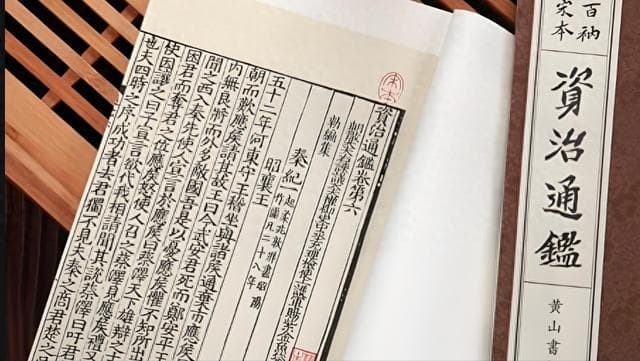 百衲
宋本
資治通鑑
黃山書
資治通鑑卷第六
朝散大夫右諫議大夫權御史中丞充理檢使上護軍賜紫金魚
勑編集
秦紀一
起柔兆敦牂盡昭陽
作噩凡二十八年
昭襄王
五十二年河東守王稽坐與諸侯通棄市應侯
朝而歎應侯請其故王曰今武安君死而鄭安平王
內無良將而外多敵國吾是以憂應侯懼不知所出
聞之西入秦先使人宣言於應侯曰蔡澤天下雄辯之士
困君而奪君之位應侯怒使人召之蔡澤見應侯禮又
使因讓之曰子宣言欲代我相請聞其說蔡澤曰吁君
也夫四時之序成功者去君獨不見夫秦之商君楚之